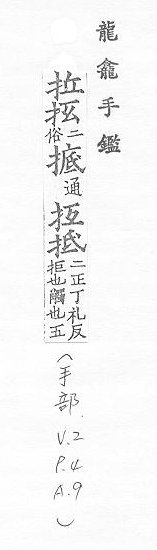 龍龕手鑑
二俗掋通抵二正丁礼反拒也也五
(手部. V.2 P.4 A.9)